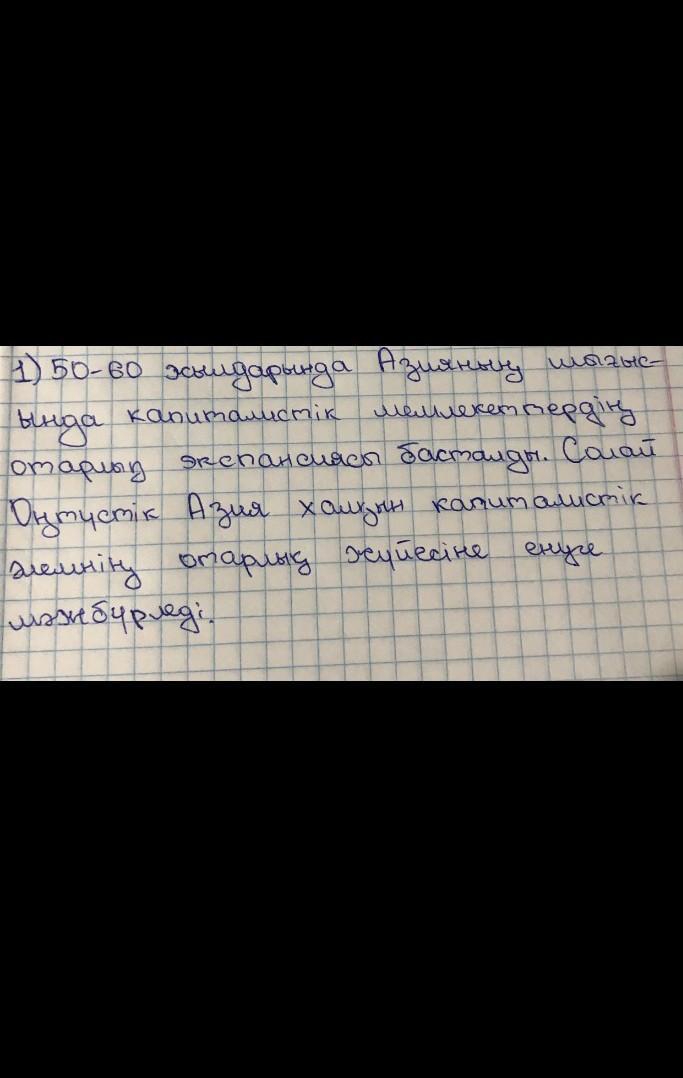 1) 50-60 жылдарында Азияның шығыс-
ында капиталистік мемлекеттердің
отарлық экспансиясы басталды. Солай
Оңтүстік Азия халқын капиталистік
әлемнің отарлық жүйесіне енуге
мәжбүрледі.